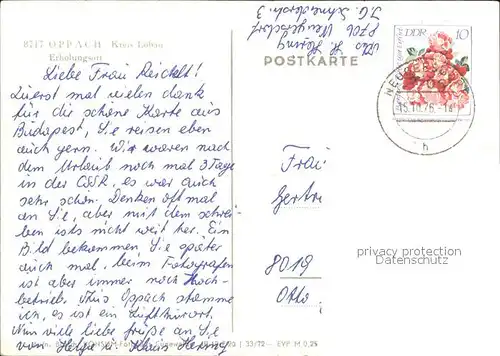 8717 OPPACH Kreis Löbau
Erholungsort
Liebe Frau Reichelt!
Zuerst mal vielen dank
für die schöne Karte aus
Budapest, Sie reisen eben
auch gern. Wir waren nach
dem Urlaub noch mal 3 Tage
in der CSSR, es war auch
sehr schön. Denken oft mal
an Sie, aber mit dem schrei-
ben ists nicht weit her. Ein
Bild bekommen Sie später
auch mal, beim Fotografen
ist aber immer noch Hoch-
betrieb. Aus Oppach stamme
ich, es ist ein Luftkurort.
Nun viele liebe grüße an Sie
von Helga u. Klaus Hering
33/72 EVP M 0,25
8706 Neugersdorf
POSTKARTE
DDR 10
15.10.76.-14
h
Frau
Gertr
8019
Otto
privacy protection
Datenschutz